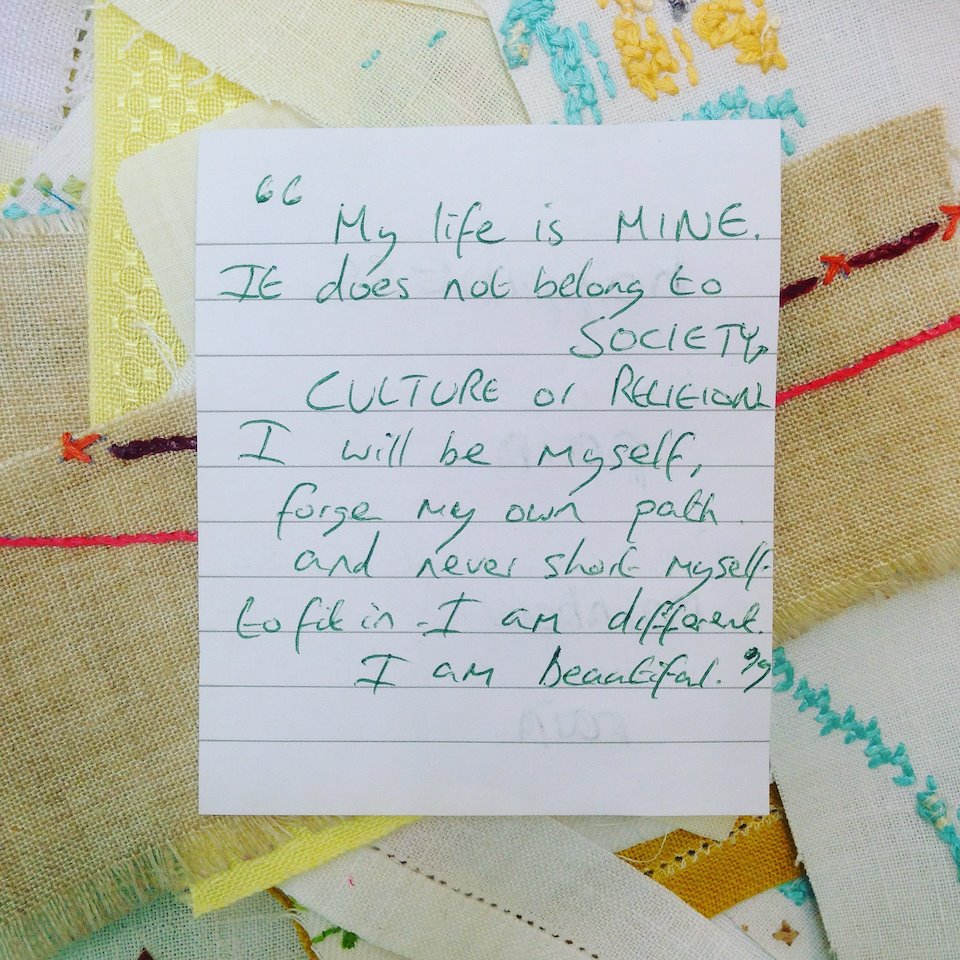 “ My life is MINE.
It does not belong to
SOCIETY,
CULTURE or RELIGION
I will be myself,
forge my own path
and never short myself
to fit in. I am different.
I am beautiful. ”